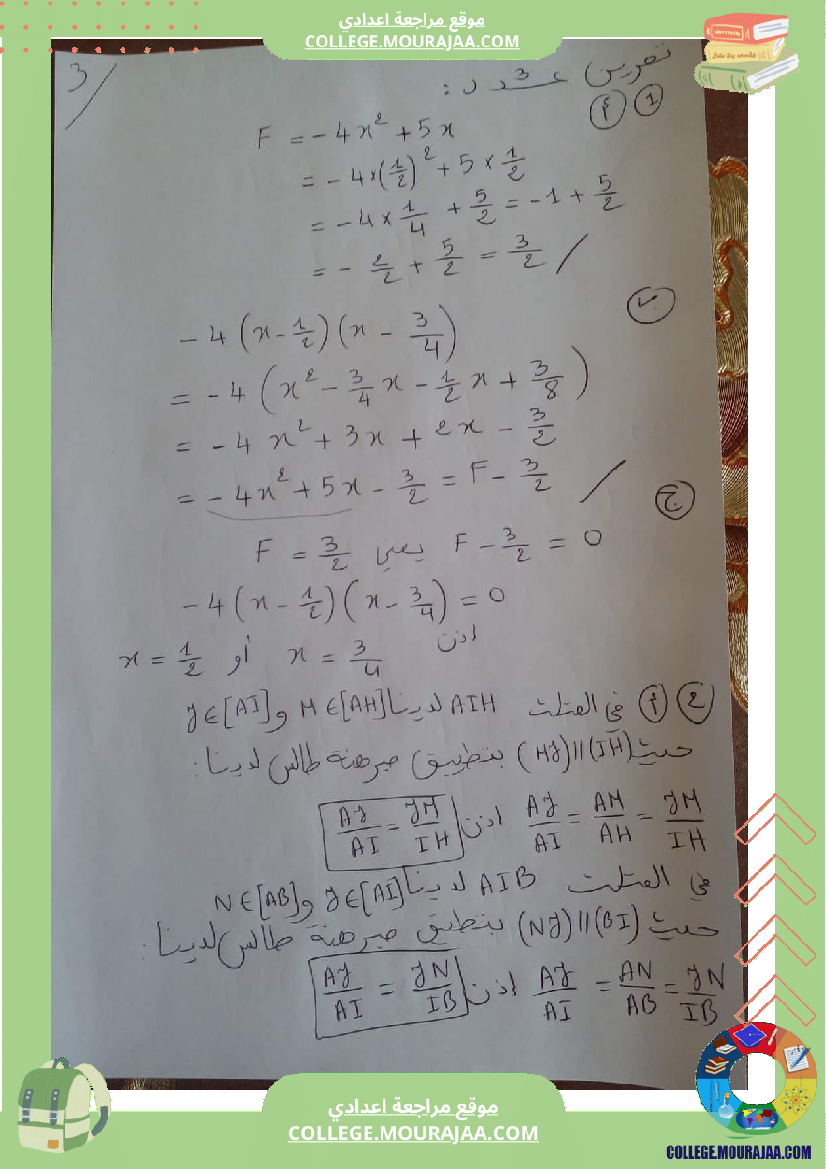 موقع مراجعة اعدادي
COLLEGE.MOURAJAA.COM
3/
تمرين عدد 3 :
1 أ
F = -4x² + 5x
= -4×(1/2)² + 5×1/2
= -4×1/4 + 5/2 = -1 + 5/2
= -2/2 + 5/2 = 3/2 /
ب
-4(x-1/2)(x-3/4)
= -4(x² - 3/4x - 1/2x + 3/8)
= -4x² + 3x + 2x - 3/2
= -4x² + 5x - 3/2 = F - 3/2 /
ج
F = 3/2 يعني F - 3/2 = 0
-4(x-1/2)(x-3/4) = 0
اذن
x = 3/4 أو x = 1/2
2 أ في المثلث AIH لدينا M∈[AH] و J∈[AI]
حيث (MJ)//(IH) بتطبيق مبرهنة طالس لدينا :
AJ/AI = AM/AH = JM/IH اذن AJ/AI = JM/IH
في المثلث AIB لدينا J∈[AI] و N∈[AB]
حيث (NJ)//(BI) بتطبيق مبرهنة طالس لدينا :
AJ/AI = AN/AB = JN/IB اذن AJ/AI = JN/IB
موقع مراجعة اعدادي
COLLEGE.MOURAJAA.COM
COLLEGE.MOURAJAA.COM